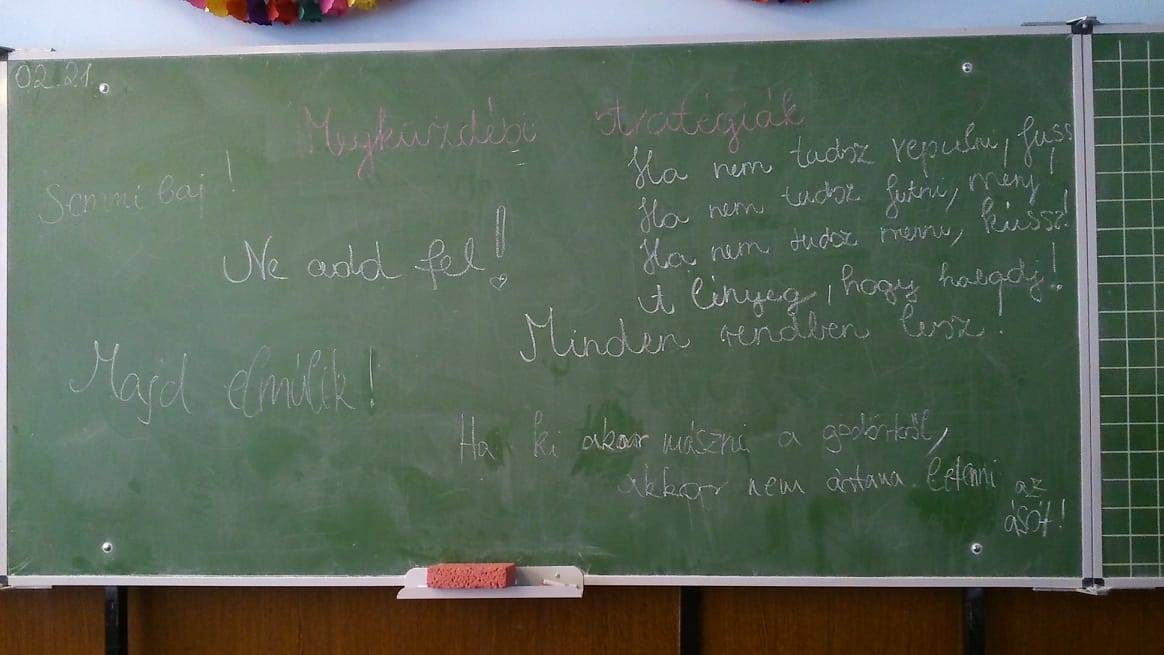 02.21.
Megküzdési stratégiák
Semmi baj!
Ne add fel!
Ha nem tudsz repülni, fuss
Ha nem tudsz futni, menj!
Ha nem tudsz menni, kússz!
A lényeg, hogy haladj!
Minden rendben lesz!
Majd elmúlik!
Ha ki akar mászni a gödörből,
akkor nem ártana letenni az
ásót!